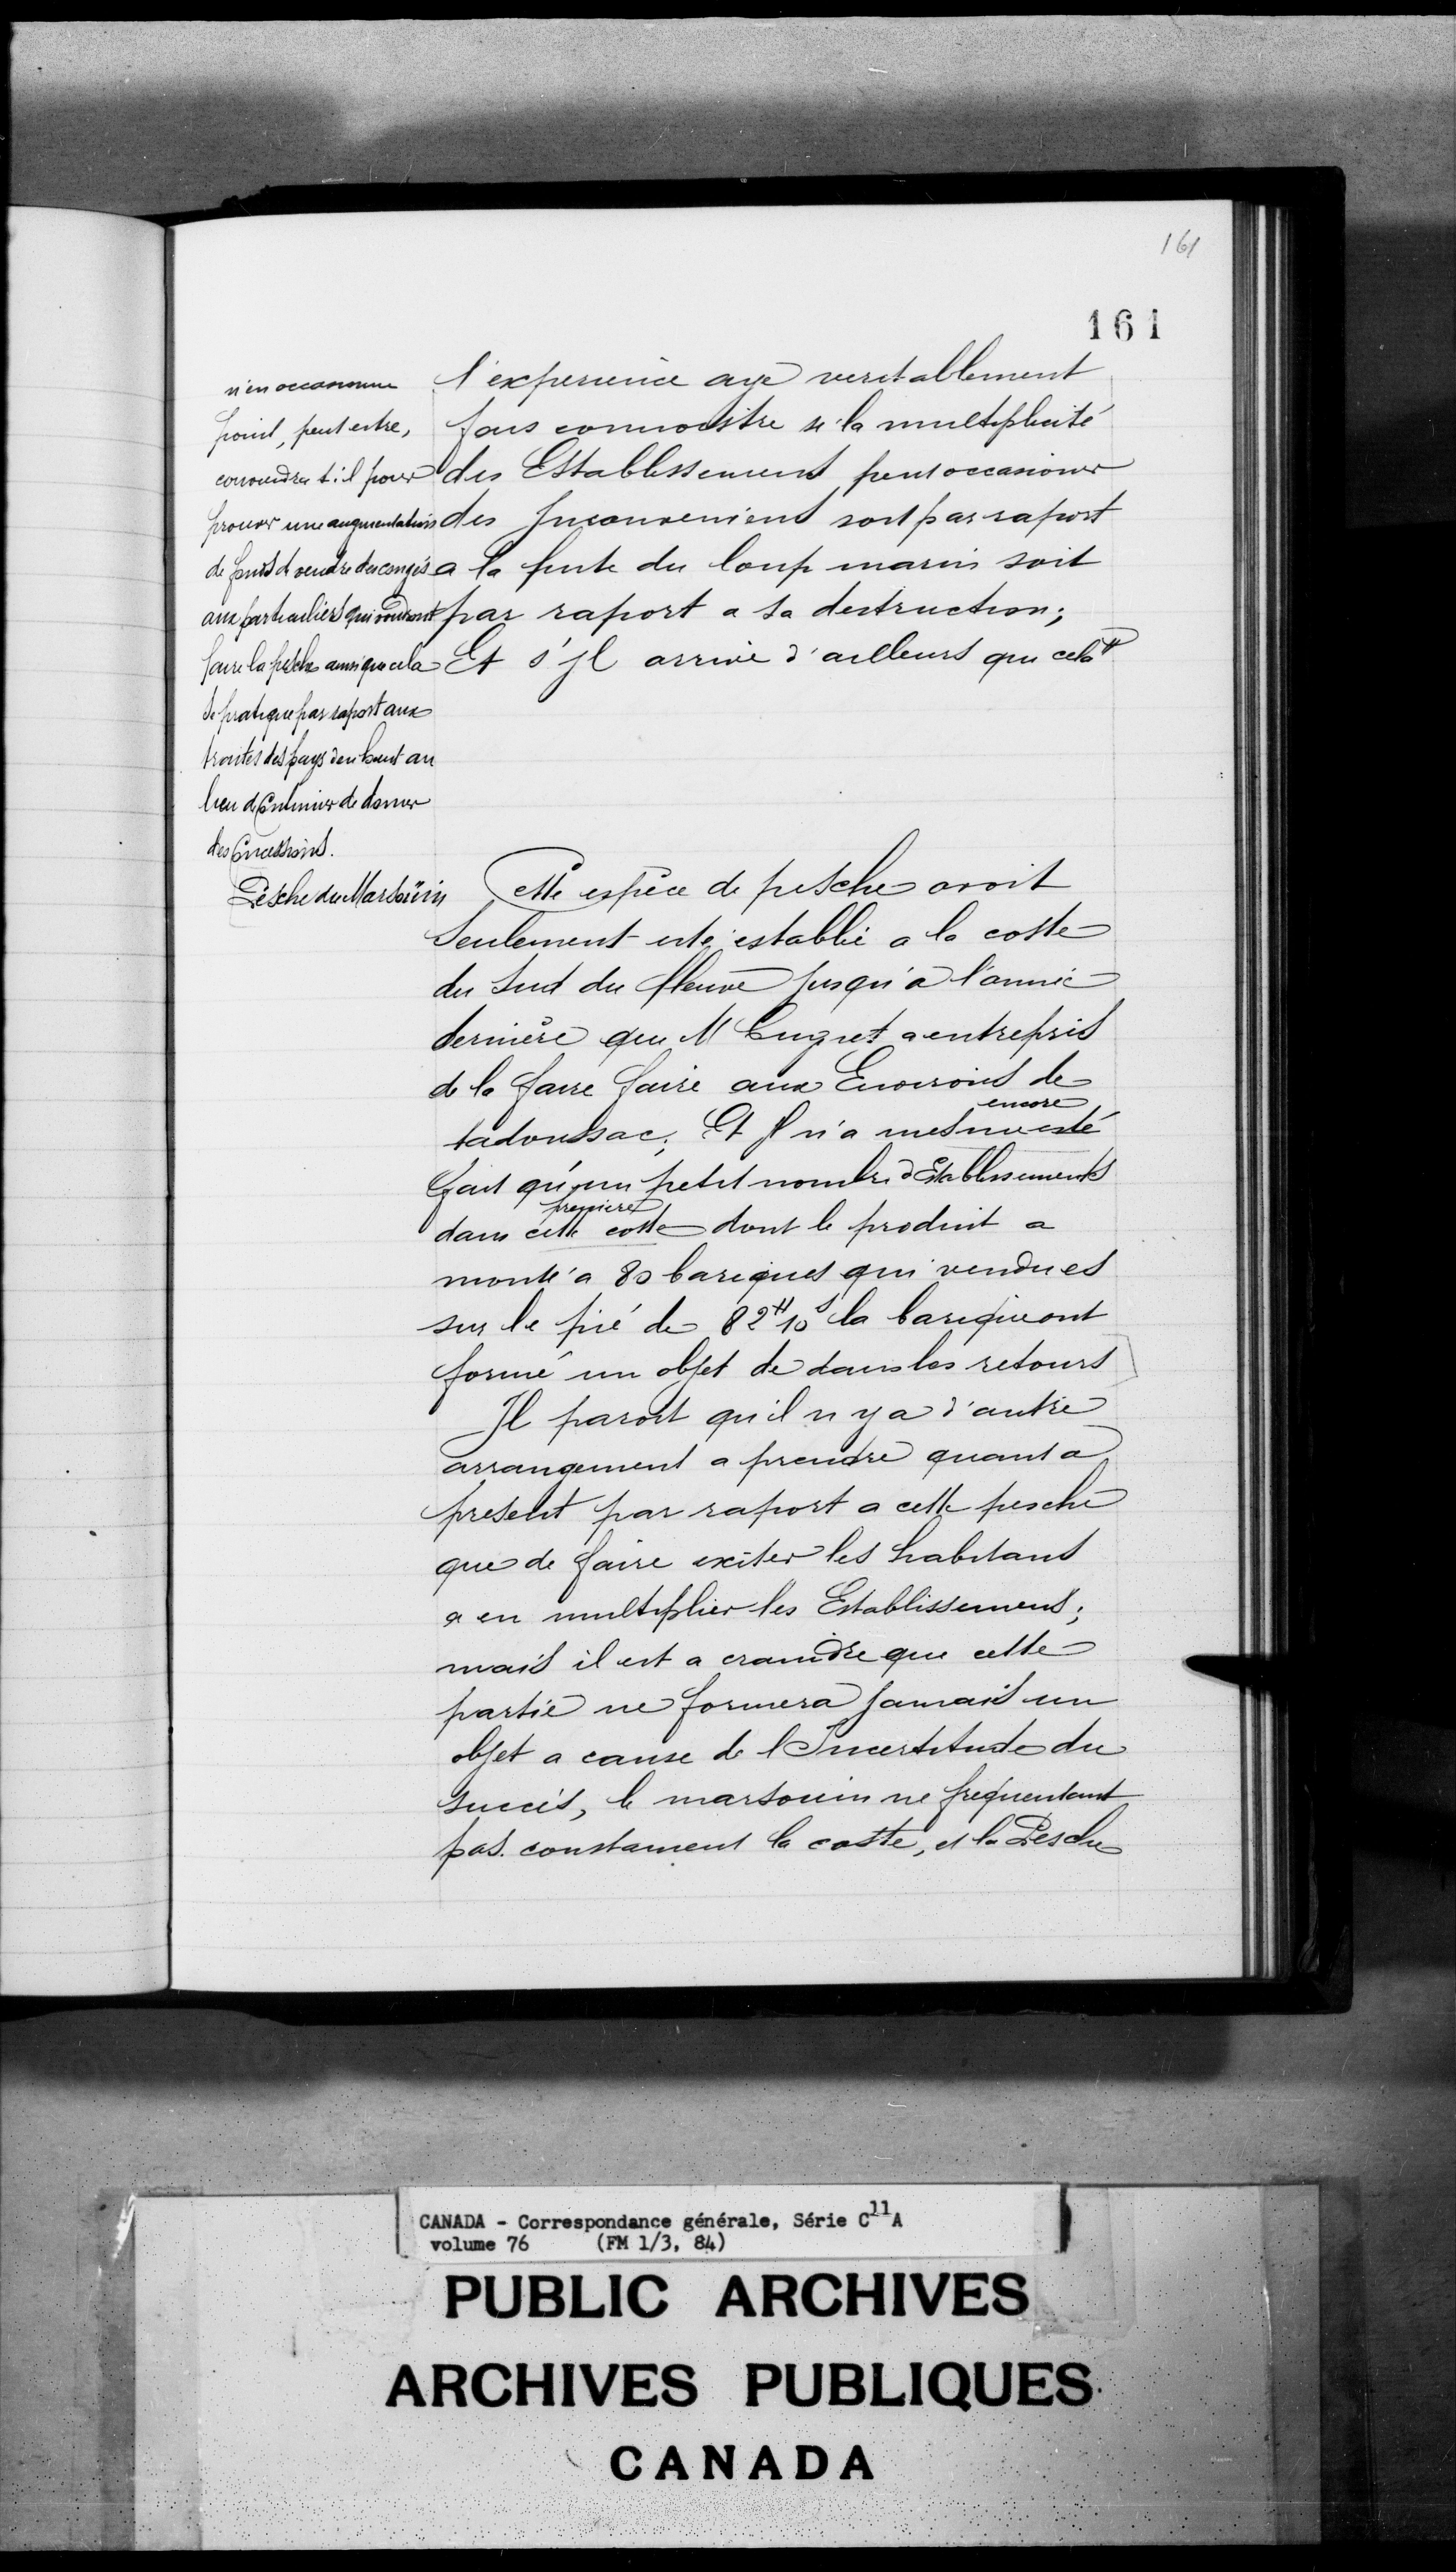 161
161
l'experience aye veritablement
fais connoistre si la multiplicité
des Establissement peut occasioner
des Jnconvenient soit par raport
a la fuite du loup marin soit
par raport a sa destruction;
Et s'jl arrive d'ailleurs que cela #
n'en occasionne
point, peut estre,
conviendra t'il pour
prouver une augmentation
de fonds de vendre des congés
aux particuliers qui voudront
faire la pesche ainsi que cela
se pratique par raport aux
traites des pays d'en haut au
lieu de Continuer de donner
des Concessions.
Pesche du Marsoüin
Cette espèce de pesche avoit
Seulement esté establie a la coste
du Sud du fleuve jusqu'a l'année
dernière que M Cugnet a entrepris
de la faire faire aux Environs de
encore
tadoussac; Et Jl n'a mesme esté
fait qu'un petit nombre d'Establissements
premiere
dans cette coste dont le produit a
monté a 80 bariques qui vendues
sur le pié de 82# 10s la barique ont
formé un objet de dans les retours
Jl paroit qu'il n y a d'autre
arrangement a prendre quant a
present par raport a cette pesche
que de faire exiter les habitans
a en multiplier les Establissement;
mais il est a craindre que cette
partie ne formera Jamais un
objet a cause de l'Incertitude du
succés, le marsouin ne frequentant
pas constament la coste, et la Pesche
CANADA - Correspondance générale, Série C11A
volume 76 (FM 1/3, 84)
PUBLIC ARCHIVES
ARCHIVES PUBLIQUES
CANADA